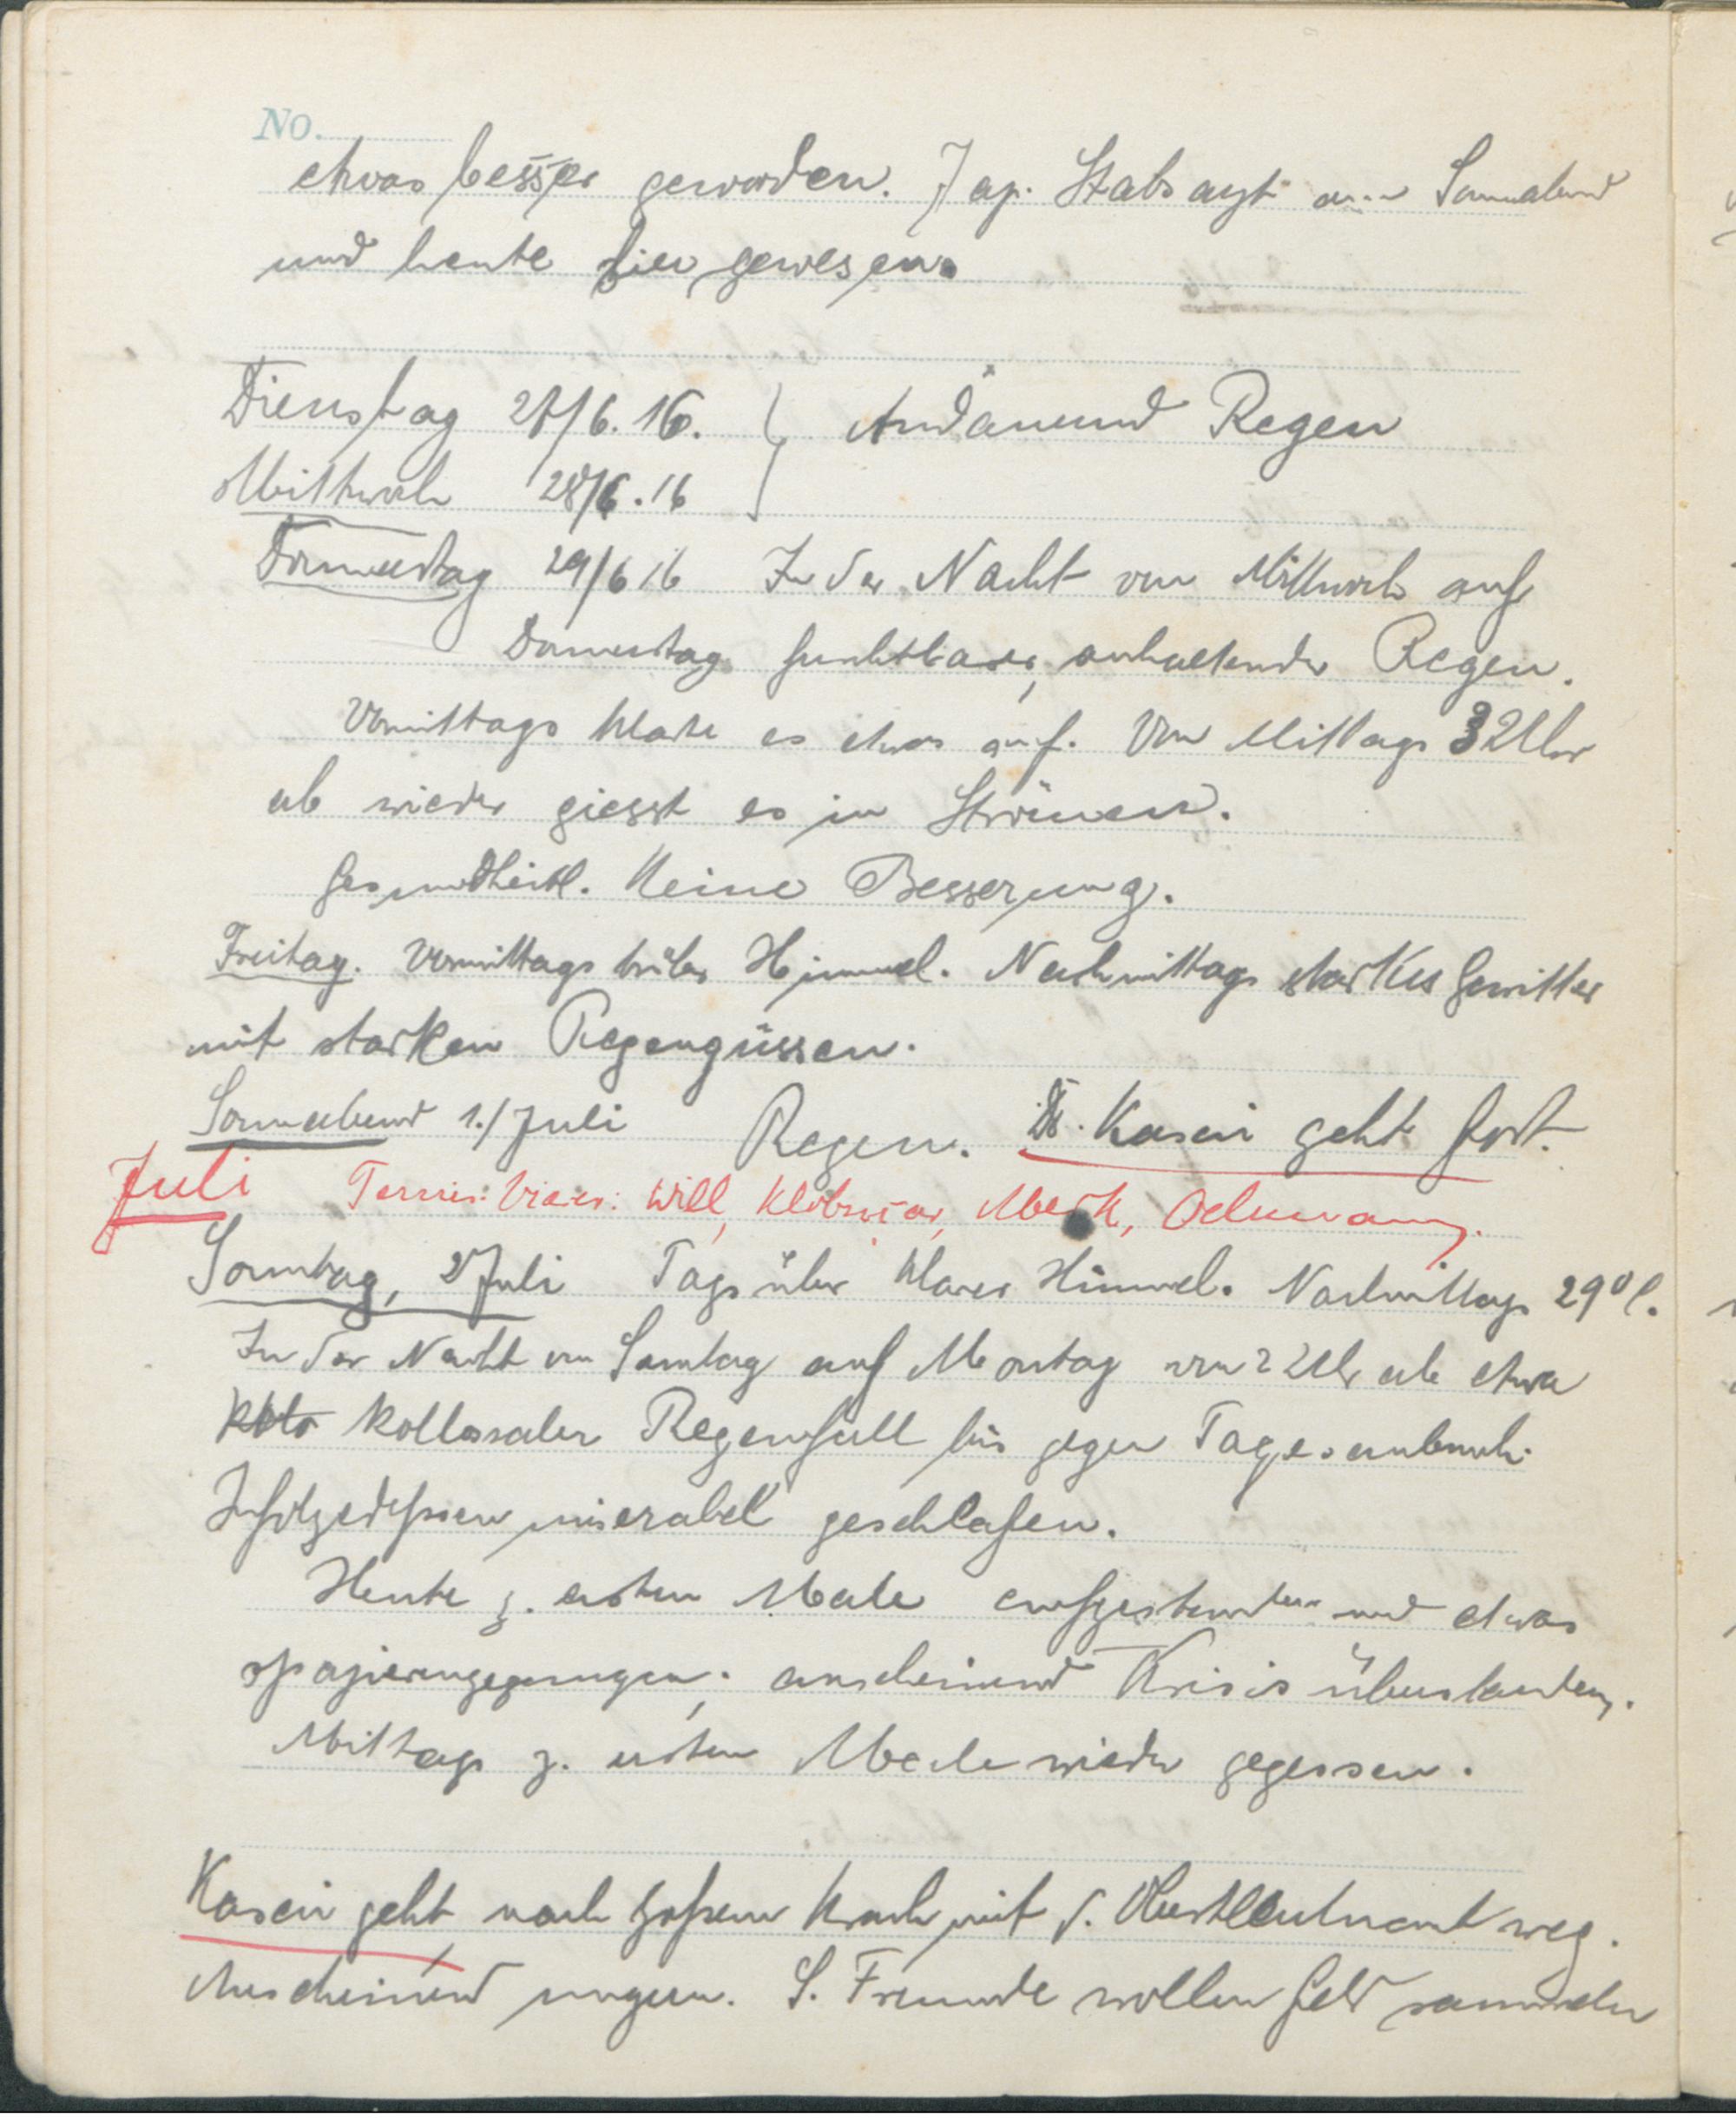 No.
etwas besser geworden. Jap. Stabsarzt am Sonnabend
und heute hier gewesen.
Dienstag 27/6.16. } Andauernd Regen
Mittwoch 28/6.16
Donnerstag 29/6 16 In der Nacht von Mittwoch auf
Donnerstag furchtbarer, anhaltender Regen.
Vormittags klarte es etwas auf. Von Mittags 2 Uhr
ab wieder giesst es in Strömen.
Gesundheitl. Keine Besserung.
Freitag. Vormittags trüber Himmel. Nachmittags starkes Gewitter
mit starken Regengüssen.
Sonnabend 1./Juli Regen. Kasei geht fort.
Juli Will, Merk,
Sonntag, 2 Juli Tagsüber klarer Himmel. Nachmittags 29° C.
In der Nacht von Sonntag auf Montag von 2 Uhr ab etwa
kollossaler Regenfall bis gegen Tagesanbruch.
Infolgedessen miserabel geschlafen.
Heute z. ersten Male aufgestanden und etwas
spazierengegangen; anscheinend Krisis überstanden.
Mittags z. ersten Male wieder gegessen.
Kasei geht nach großem Krach mit d. Oberstleutnant weg.
Anscheinend ungern. S. Freunde wollen Geld sammeln